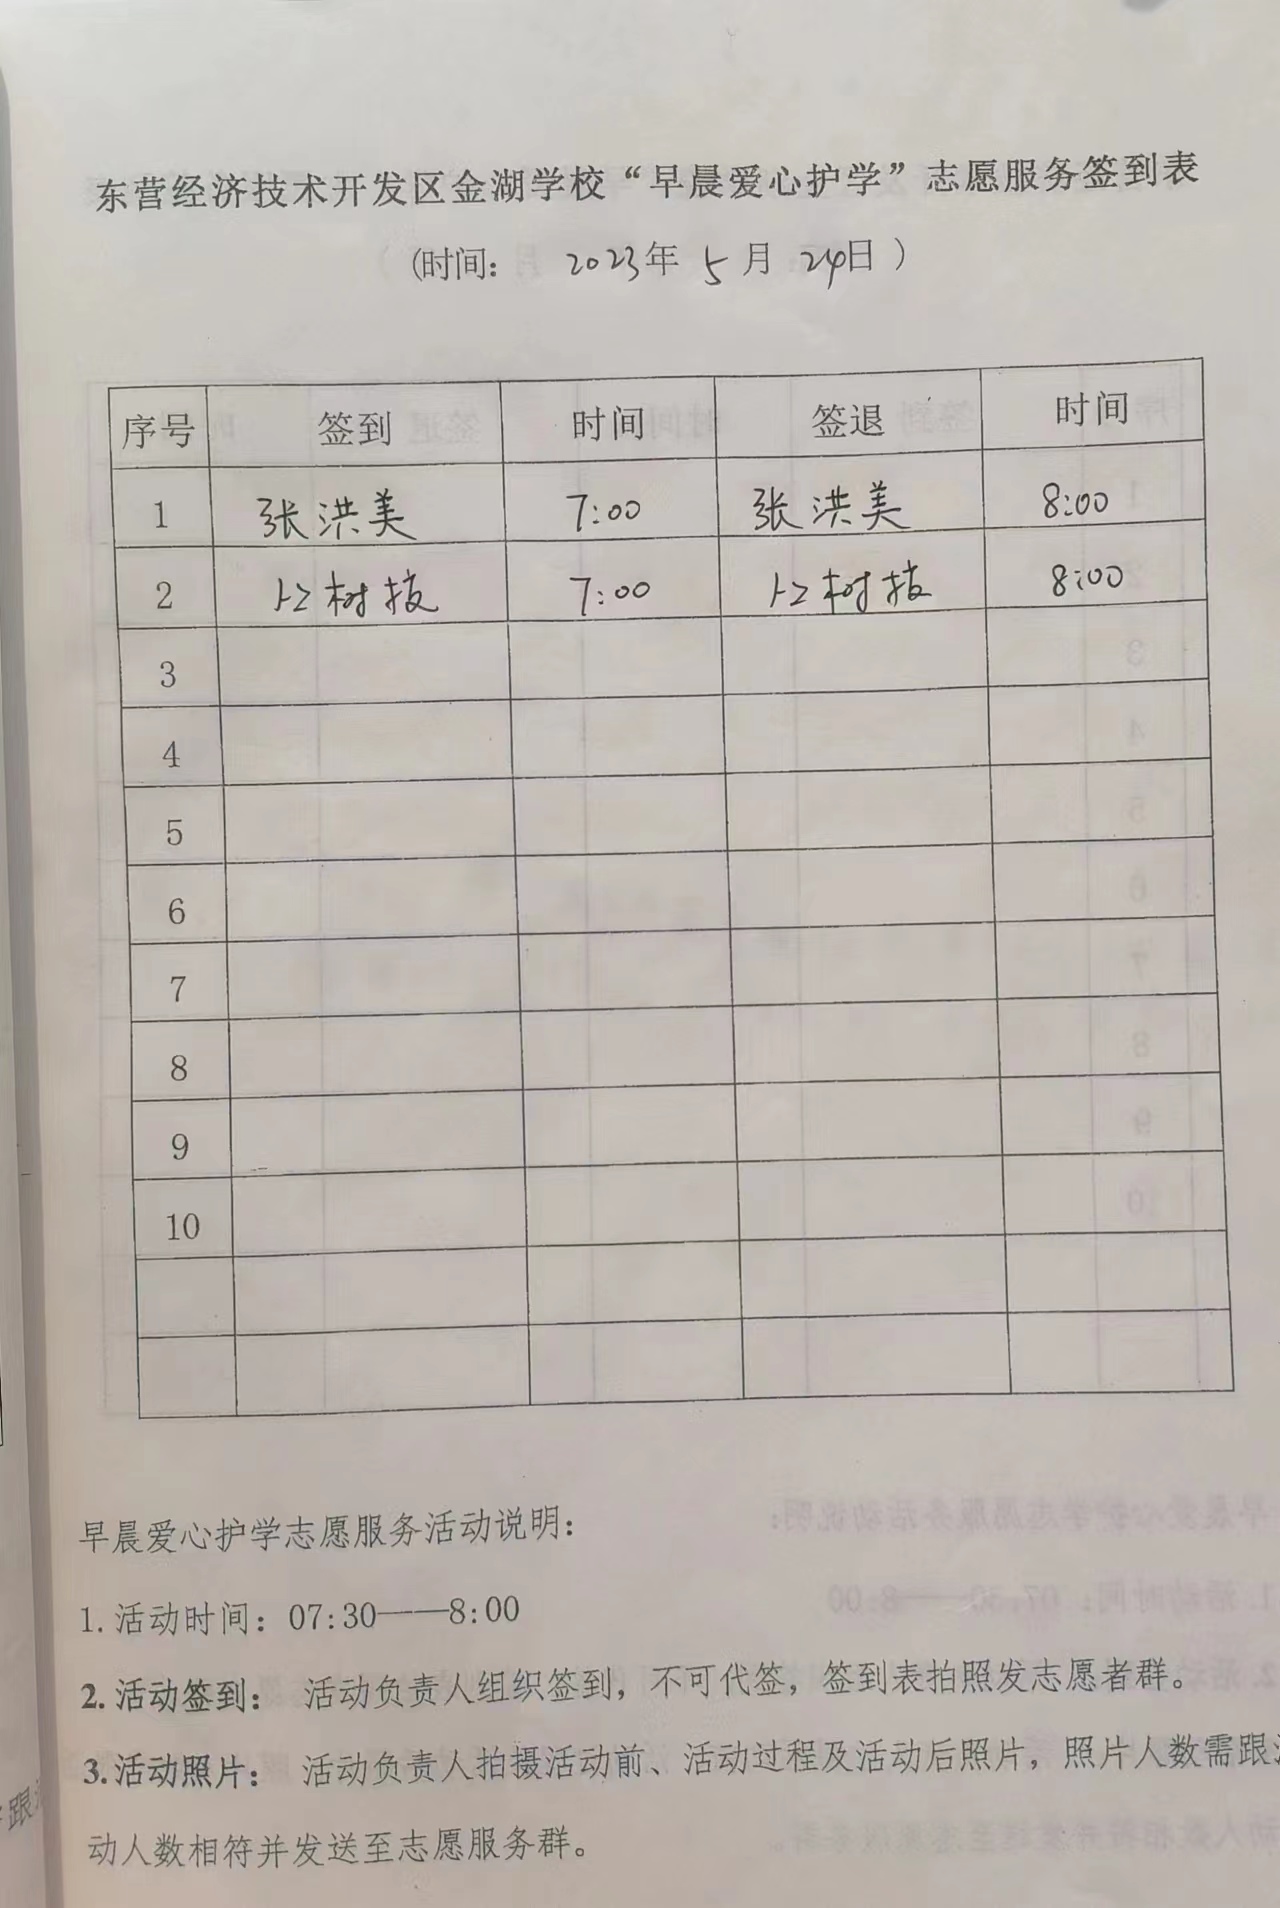 东营经济技术开发区金湖学校“早晨爱心护学”志愿服务签到表
(时间: 2023年 5月 24日)
序号 签到 时间 签退 时间
1 张洪美 7:00 张洪美 8:00
2 树枝 7:00 树枝 8:00
3
4
5
6
7
8
9
10
早晨爱心护学志愿服务活动说明:
1. 活动时间: 07:30——8:00
2. 活动签到: 活动负责人组织签到，不可代签，签到表拍照发志愿者群。
3. 活动照片: 活动负责人拍摄活动前、活动过程及活动后照片，照片人数需跟
动人数相符并发送至志愿服务群。
跟